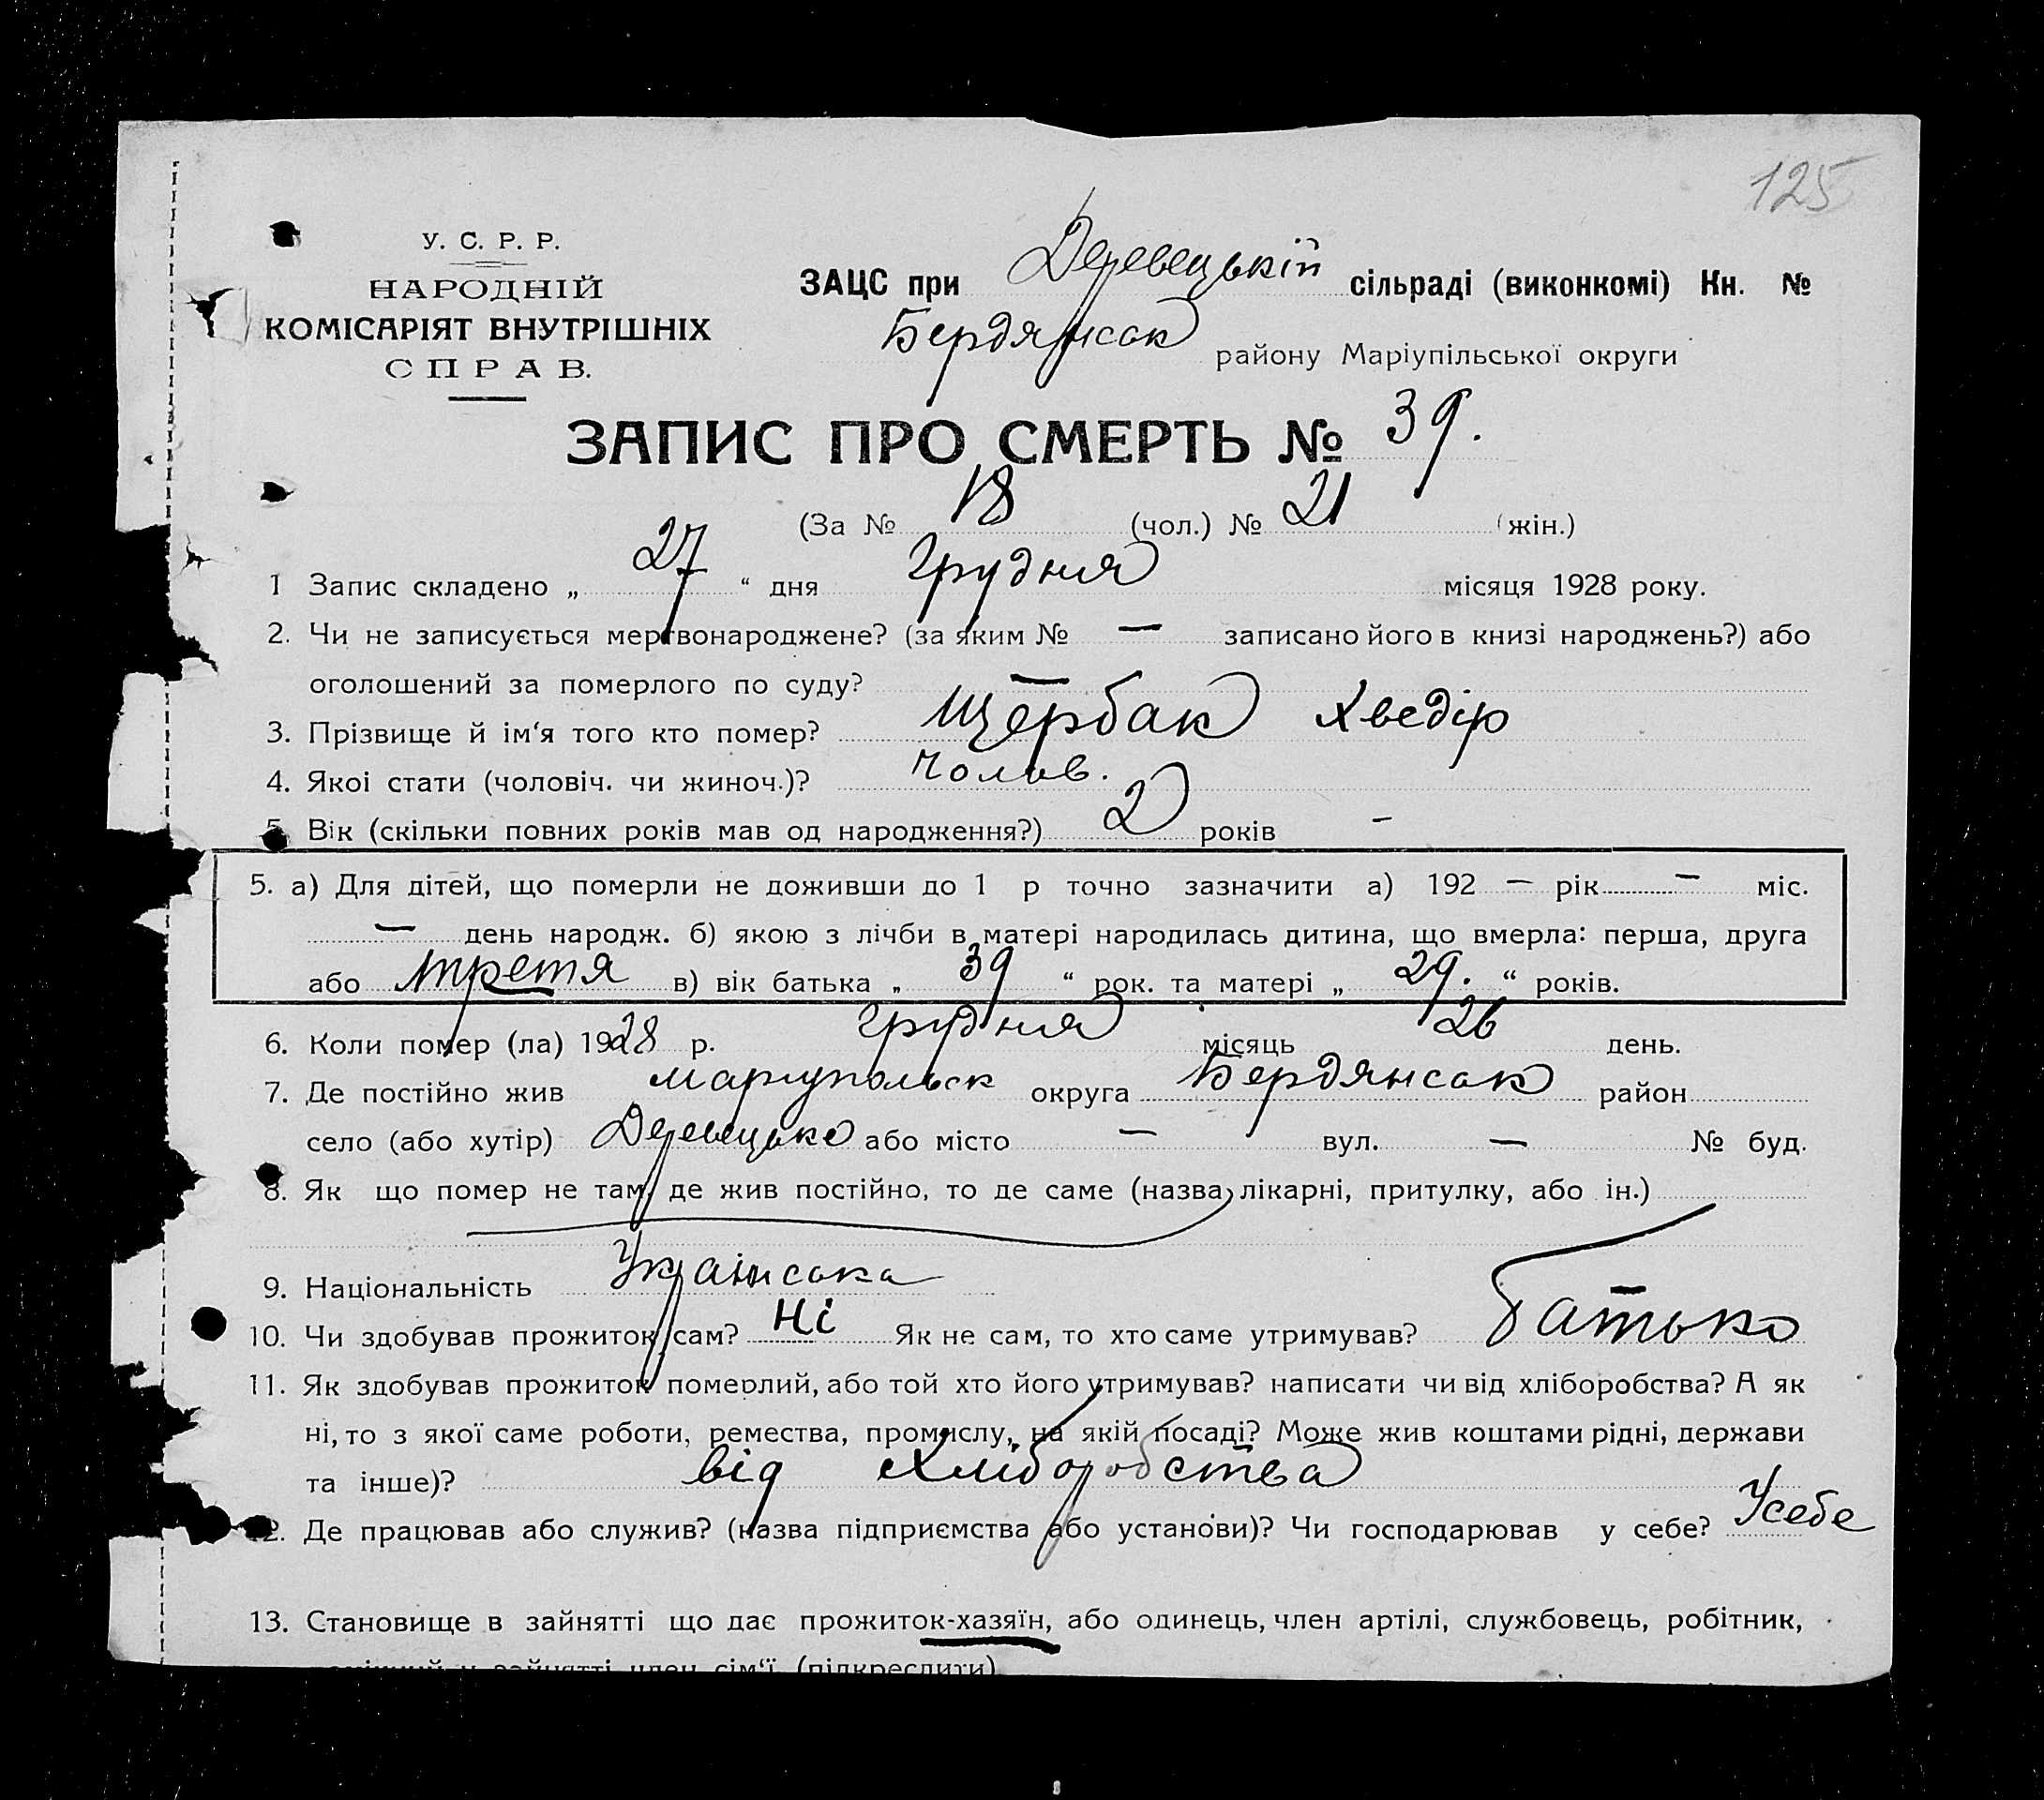 125
У. С. Р. Р.
НАРОДНІЙ
КОМІСАРІЯТ ВНУТРІШНІХ
СПРАВ.
ЗАЦС при Деревецькій сільраді (виконкомі) Кн. №
Бердянськ району Маріупільської округи
ЗАПИС ПРО СМЕРТЬ № 39.
(За № 18 (чол.) № 21 (жін.)
1 Запис складено „ 27 “ дня Грудня місяця 1928 року.
2. Чи не записується мертвонароджене? (за яким № — записано його в книзі народжень?) або
оголошений за померлого по суду? —
3. Прізвище й ім‘я того кто помер? Щербак Хведір
4. Якоі стати (чоловіч. чи жиноч.)? Чолов.
5. Вік (скільки повних років мав од народження?) 2 років –
5. а) Для дітей, що померли не доживши до 1 р точно зазначити а) 192 — рік — міс.
— день народж. б) якою з лічби в матері народилась дитина, що вмерла: перша, друга
або третя в) вік батька „ 39 “ рок. та матері „ 29. “ років.
6. Коли помер (ла) 1928 р. Грудня місяць 26 день.
7. Де постійно жив Маріупольск округа Бердянськ район
село (або хутір) Деревецьке або місто — вул. — № буд.
8. Як що помер не там, де жив постійно, то де саме (назва лікарні, притулку, або ін.)
9. Національність Українська
10. Чи здобував прожиток сам? Ні Як не сам, то хто саме утримував? Батько
11. Як здобував прожиток померлий, або той хто його утримував? написати чи від хліборобства? А як
ні, то з якої саме роботи, ремества, промислу, на якій посаді? Може жив коштами рідні, держави
та інше)? від Хліборобства
12. Де працював або служив? (назва підприємства або установи)? Чи господарював у себе? Усебе
13. Становище в зайнятті що дає прожиток-хазяїн, або одинець, член артілі, службовець, робітник,
зайнятті член сім‘ї (підкреслити)